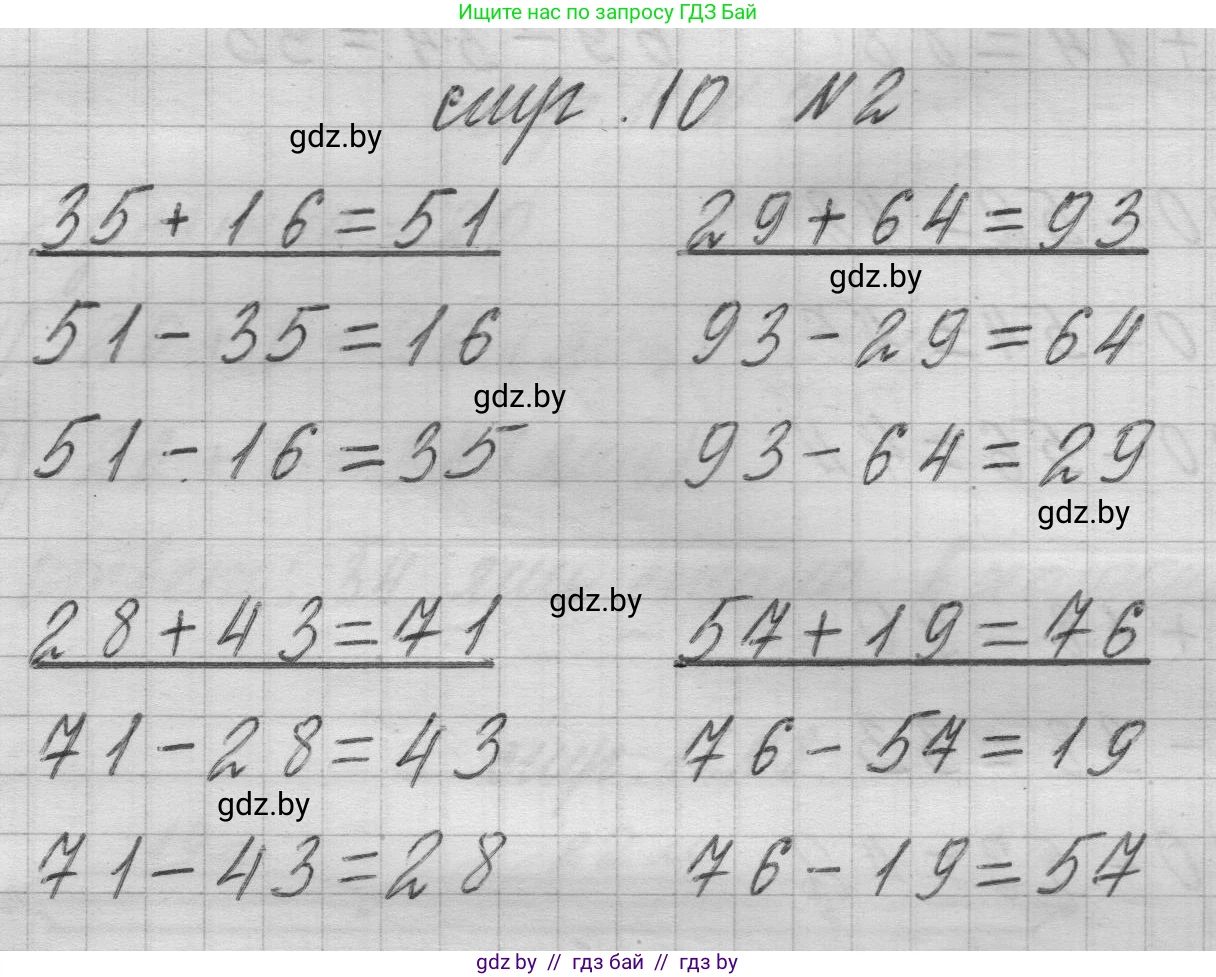 Ищите нас по запросу ГДЗ Бай
стр. 10 №2
gdz.by
35+16=51 29+64=93
gdz.by
51-35=16 93-29=64
gdz.by
51-16=35 93-64=29
gdz.by
gdz.by
28+43=71 57+19=76
71-28=43 76-57=19
gdz.by
71-43=28 76-19=57
gdz by // гдз бай // гдз by